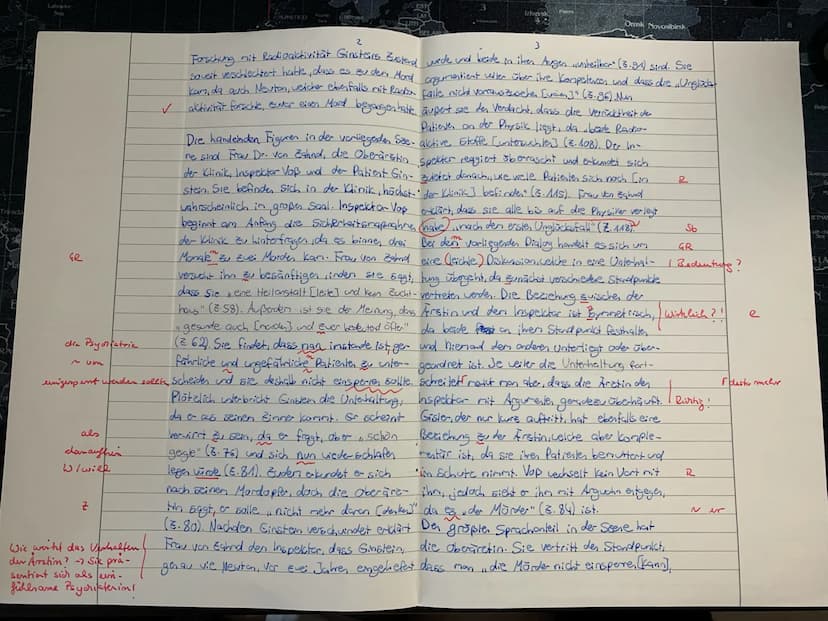 2
Forschung mit Radioaktivität Einsteins Zustand
soweit verschlechtert hatte, dass es zu dem Mord
kam, da auch Newton, welcher ebenfalls mit Radio-
aktivität forschte, zuvor einen Mord begangen hatte.
Die handelnden Figuren in der vorliegenden Sze-
ne sind Frau Dr. von Zahnd, die Oberärztin
der Klinik, Inspektor Voß und der Patient Ein-
stein. Sie befinden sich in der Klinik, höchst-
wahrscheinlich im großen Saal. Inspektor Voß
beginnt am Anfang die Sicherheitsmaßnahmen
der Klinik zu hinterfragen, da es binnen drei
Monate zu zwei Morden kam. Frau von Zahnd
versucht ihn zu besänftigen, indem sie sagt,
dass sie „eine Heilanstalt [leite] und kein Zucht-
haus" (Z. 58). Außerdem ist sie der Meinung, dass
„gesunde auch [morden] und zwar bedeutend öfter"
(Z. 62) Sie findet, dass man imstande ist, ge-
fährliche und ungefährliche Patienten zu unter-
scheiden und sie deshalb nicht einsperren solle.
Plötzlich unterbricht Einstein die Unterhaltung,
da er aus seinem Zimmer kommt. Er scheint
verwirrt zu sein, da er fragt, aber „schön
gegeigt" (Z. 75) und sich nun wieder schlafen
legen würde (Z. 81). Zudem erkundet er sich
nach seinem Mordopfer, doch die Oberärz-
tin sagt, er solle „nicht mehr daran [denken]"
(Z. 80). Nachdem Einstein verschwindet erklärt
Frau von Zahnd dem Inspektor, dass Einstein,
genau wie Newton, vor zwei Jahren eingeliefert
GR
die Psychiatrie
~ um
eingesperrt werden sollte
als
daraufhin
W/will
Z
Wie wirkt das Verhalten
der Ärztin? → Sie prä-
sentiert sich als ein-
fühlsame Psychiaterin!
3
wurde und beide in ihren Augen „unheilbar" (Z. 91) sind. Sie
argumentiert weiter über ihre Kompetenzen und dass die „Unglücks-
fälle nicht vorauszusehen [waren]" (Z. 96). Nun
äußert sie den Verdacht, dass die Verrücktheit der
Patienten an der Physik liegt, da „beide Radio-
aktive Stoffe [untersuchten] (Z. 108). Der In-
spektor reagiert überrascht und erkundet sich
zuletzt danach, wie viele Patienten sich noch [in
der Klinik] befinden" (Z. 115). Frau von Zahnd
erklärt, dass sie alle bis auf die Physiker verlegt
habe „nach den ersten Unglücksfall" (Z. 118)
Bei den vorliegenden Dialog handelt es sich um
eine (leichte) Diskussion, welche in eine Unterhal-
tung übergeht, da zunächst verschiedene Standpunkte
vertreten werden. Die Beziehung zwischen der
Ärztin und dem Inspektor ist symmetrisch,
da beide an ihren Standpunkt festhalten
und niemand dem anderen unterliegt oder über-
geordnet ist. Je weiter die Unterhaltung fort-
schreitet merkt man aber, dass die Ärztin den
Inspektor mit Argumenten geradezu überhäuft.
Einstein, der nur kurz auftritt, hat ebenfalls eine
Beziehung zu der Ärztin, welche aber komple-
mentär ist, da sie ihren Patienten bemuttert und
in Schutz nimmt. Voß wechselt kein Wort mit
ihm, jedoch sieht er ihn mit Argwohn entgegen,
da es „der Mörder" (Z. 84) ist.
Den größten Sprachanteil in der Szene hat
die Oberärztin. Sie vertritt den Standpunkt,
dass man „die Mörder nicht einsperren [kann],
R
Sb
GR
Bedeutung?
Wirklich?!
R
desto mehr
Richtig!
R
~ er